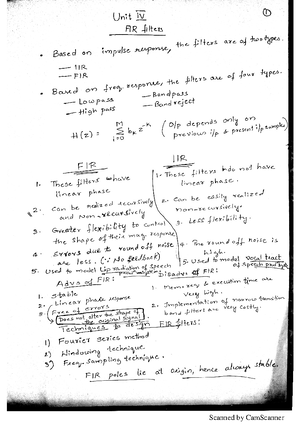 ①
Unit IV
FIR filters
• Based on impulse response, the filters are of two types.
— IIR
— FIR
• Based on freq. response, the filters are of four types.
— Lowpass — Bandpass
— High pass — Band reject
H(z) = M Σ i=0 bₖ z⁻ᵏ (O/p depends only on
previous i/p & present i/p samples)
FIR
1. These filters have
linear phase
2. Can be realized recursively
and Non-recursively
3. Greater flexibility to control
the shape of their mag. response
4. Errors due to round off noise
are less. (∵ No feedback)
5. Used to model Lip radiation of speech
IIR
1. These filters do not have
linear phase.
2. Can be easily realized
recursively.
3. Less flexibility.
4. The round off noise is
high.
5. Used to model vocal tract
of speech
Advs of FIR:
1. Stable
2. Linear phase response
3. Free of errors
Does not alter the shape of
the original signal
Disadv of FIR:
1. Memory & execution time are
very high.
2. Implementation of narrow transition
band filters are very costly.
Techniques to design FIR filters:
1) Fourier series method
2) Windowing technique.
3) Freq. sampling technique.
FIR poles lie at origin, hence always stable.
Scanned by CamScanner